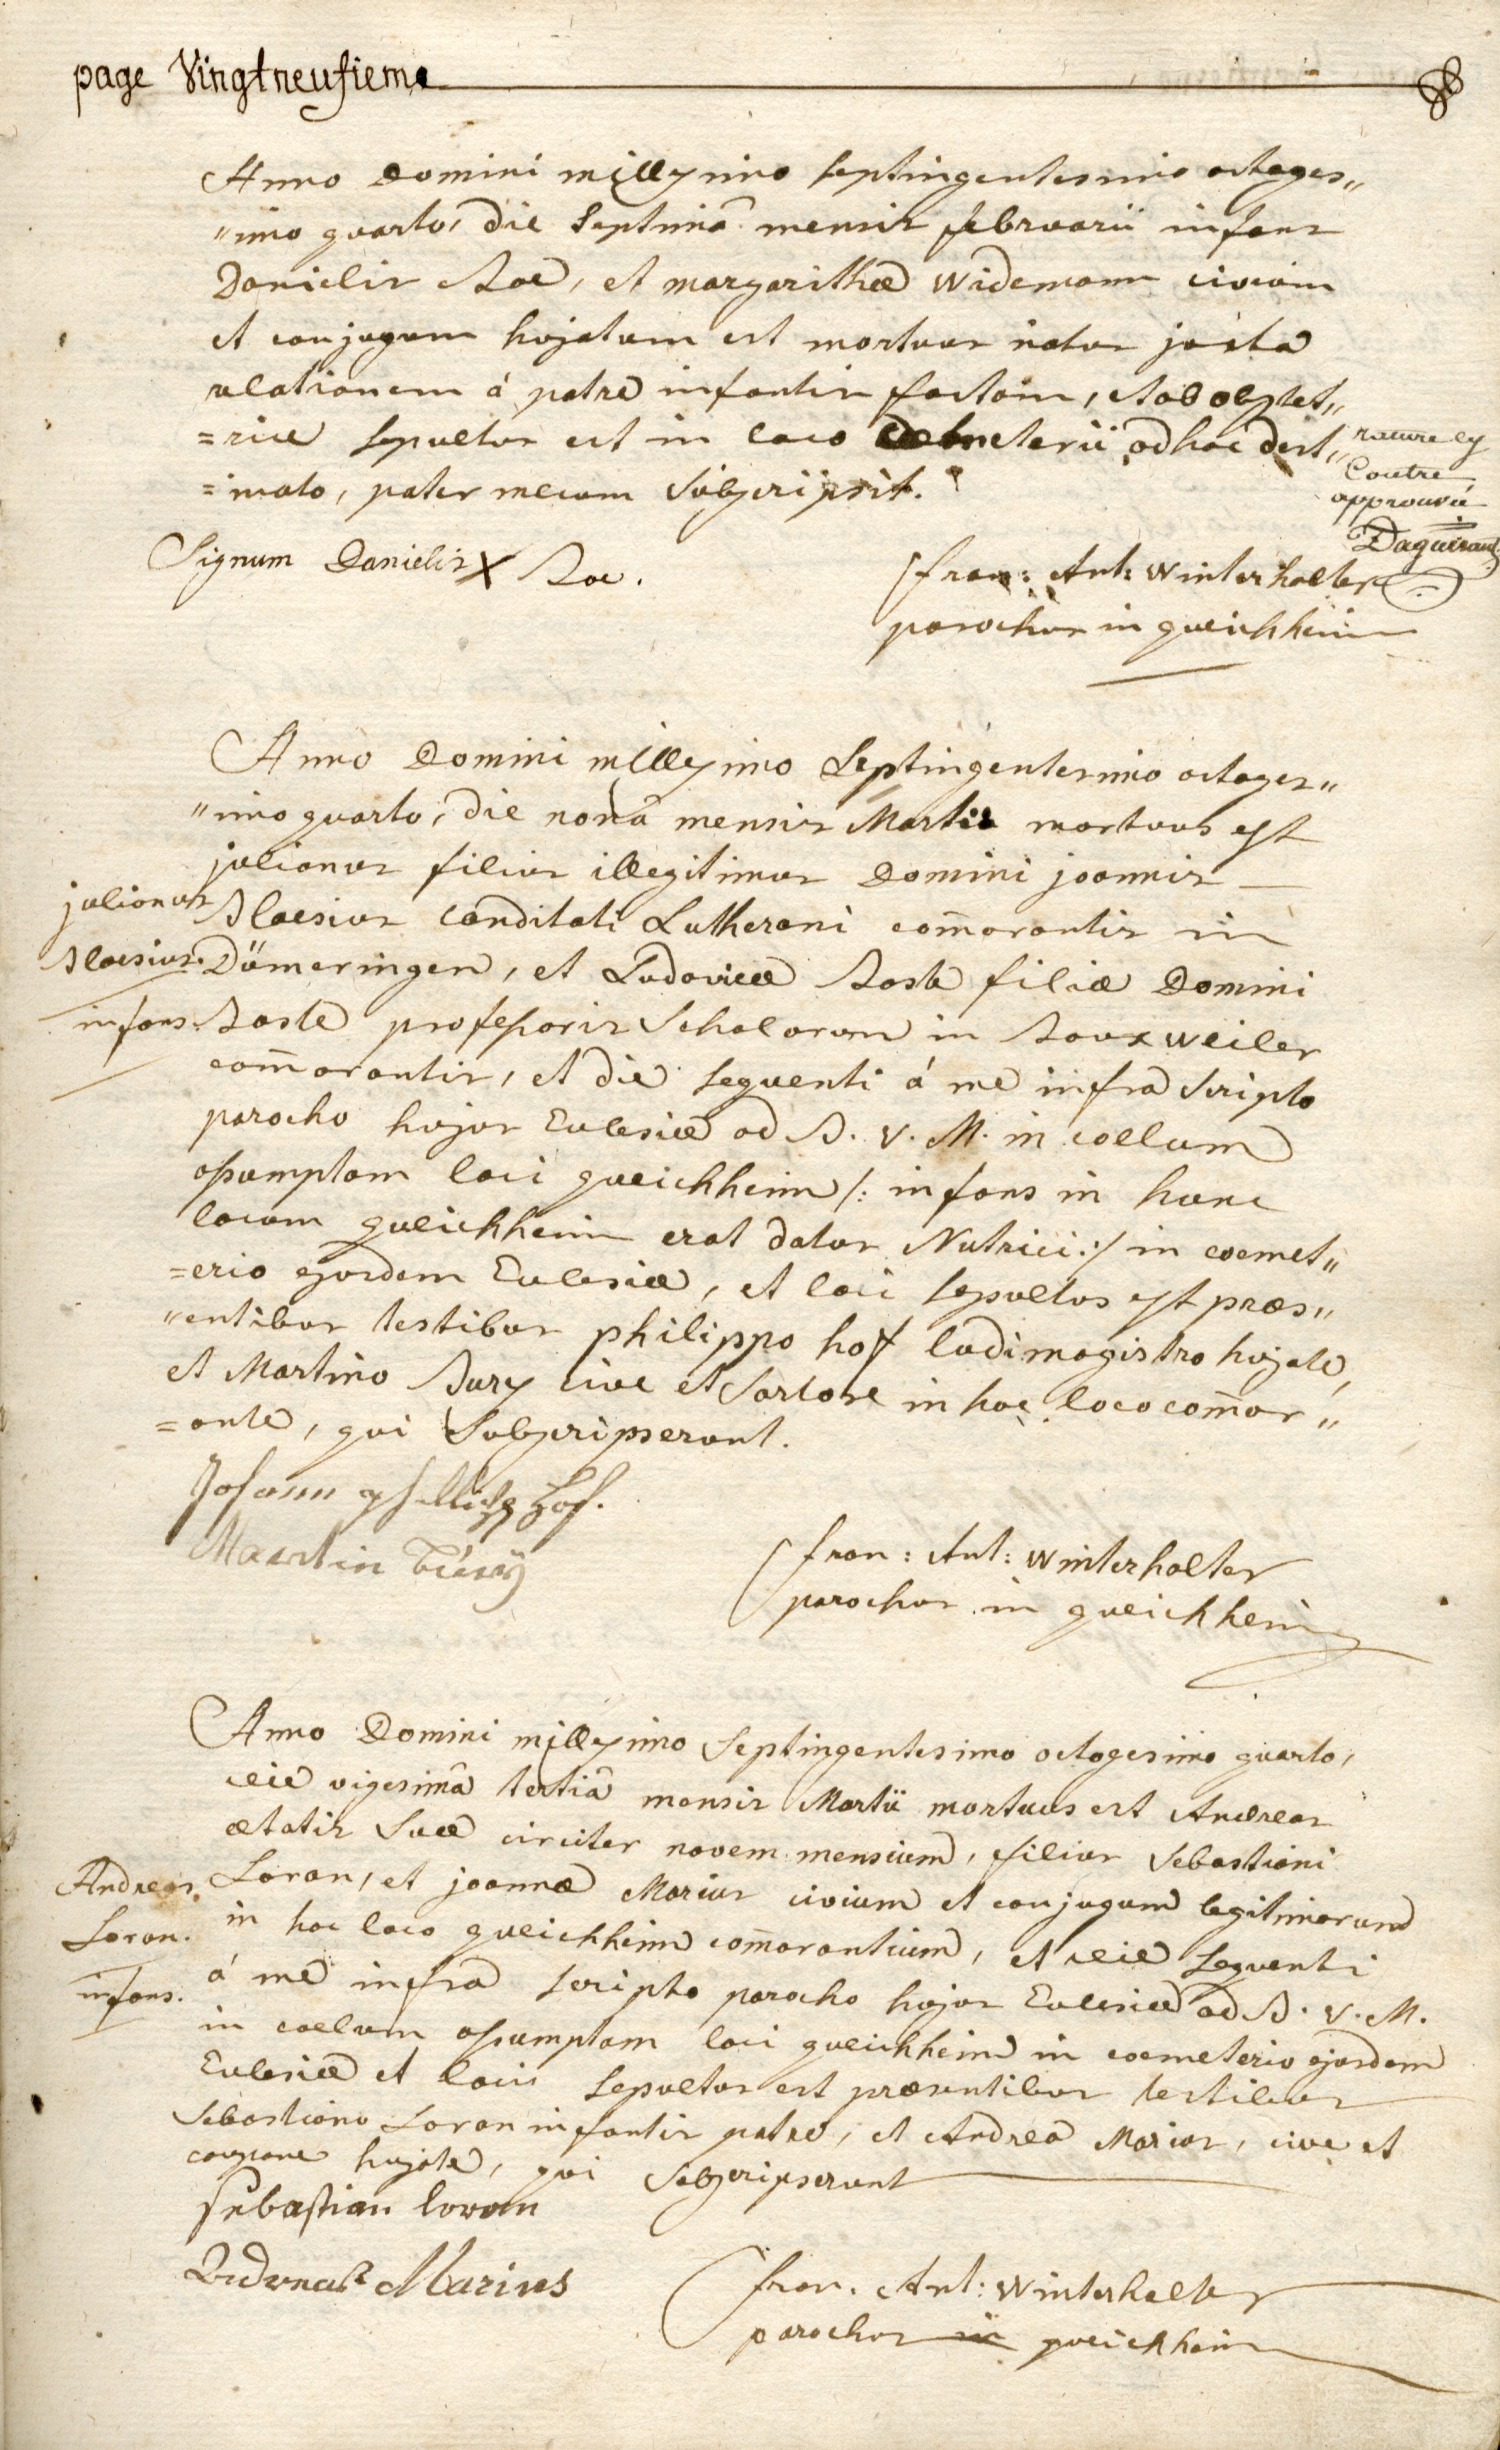 page Vingtneufieme
Anno Domini millesimo septingentesimo octoges„
„imo quarto, die septimâ mensis februarii infans
Danielis Boe, et margarithæ Widemann civium
et conjugum hujatum est mortuus natus juxta
relationem á patre infantis factam, et ab obstet„
=rice sepultus est in loco Coemeterii ad hoc dest„
=inato, pater mecum Subscripsit.
rature cy
Contre
approuvée
Signum Danielis X Boe.
fran: Ant: Winterholter
parochus in gueichheim
Anno Domini millesimo Septingentesimo octoges„
„imo quarto, die nonâ mensis Martii mortuus est
julianus filius illegitimus Domini joannis
julianus
Blaesius Canditati Lutherani com̄orantis in
Blaesius.
Dömeringen, et Ludovicæ Boste filiæ Domini
infans.
Boste professoris Scholarum in Bouxweiler
com̄orantis, et die sequenti á me infra Scripto
parocho hujus Eclesiæ ad B. V. M. in coellum
assumptam loci gueichheim /: infans in hunc
locum gueichheim erat datus Nutrici :/ in coemet„
=erio ejusdem Eclesiæ, et loci sepultus est præs„
„entibus testibus philippo hof ludimagistro hujate,
et Martino Bury cive et Sartore in hoc loco com̄or„
=ante, qui Subscripserunt.
Johann Philipp Hof.
Maartin Büry
fran: Ant: Winterholter
parochus in gueichheim
Anno Domini millesimo Septingentesimo octogesimo quarto,
die vigesimâ tertiâ mensis Martii mortuus est Andreas
ætatis Suæ circiter novem mensium, filius Sebastiani
Andreas
Loran, et joannæ Marius civium et conjugum legitimorum
Loran.
in hoc loco gueichheim com̄orantium, et die Sequenti
infans.
á me infra Scripto parocho hujus Eclesiæ ad B. V. M.
in coelum assumptam loci gueichheim in coemeterio ejusdem
Eclesiæ et loci Sepultus est præsentibus testibus
Sebastiano Loran infantis patre, et Andreâ Marius, cive et
caupone hujate, qui Subscripserunt
Sebastian loran
Andreas Marius
fran: Ant: Winterholter
parochus in gueichheim